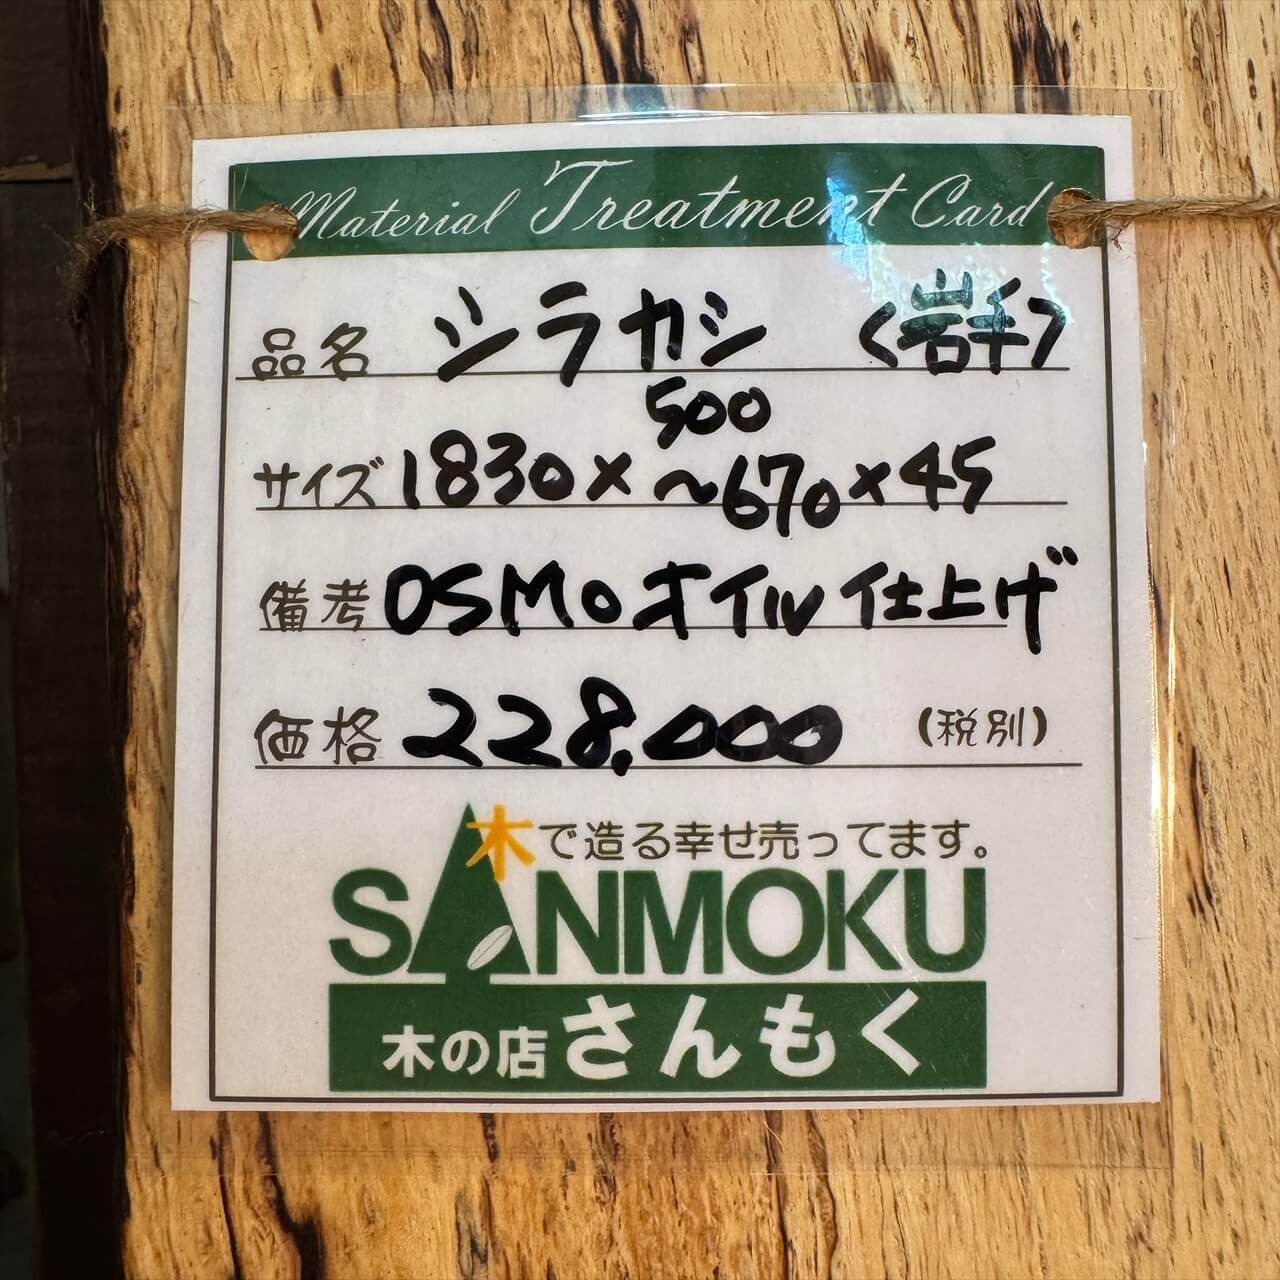 Material Treatment Card
品名 シラカシ (岩手)
500
サイズ 1830×～670×45
備考 OSMOオイル仕上げ
価格 228,000 (税別)
木で造る幸せ売ってます。
SANMOKU
木の店さんもく